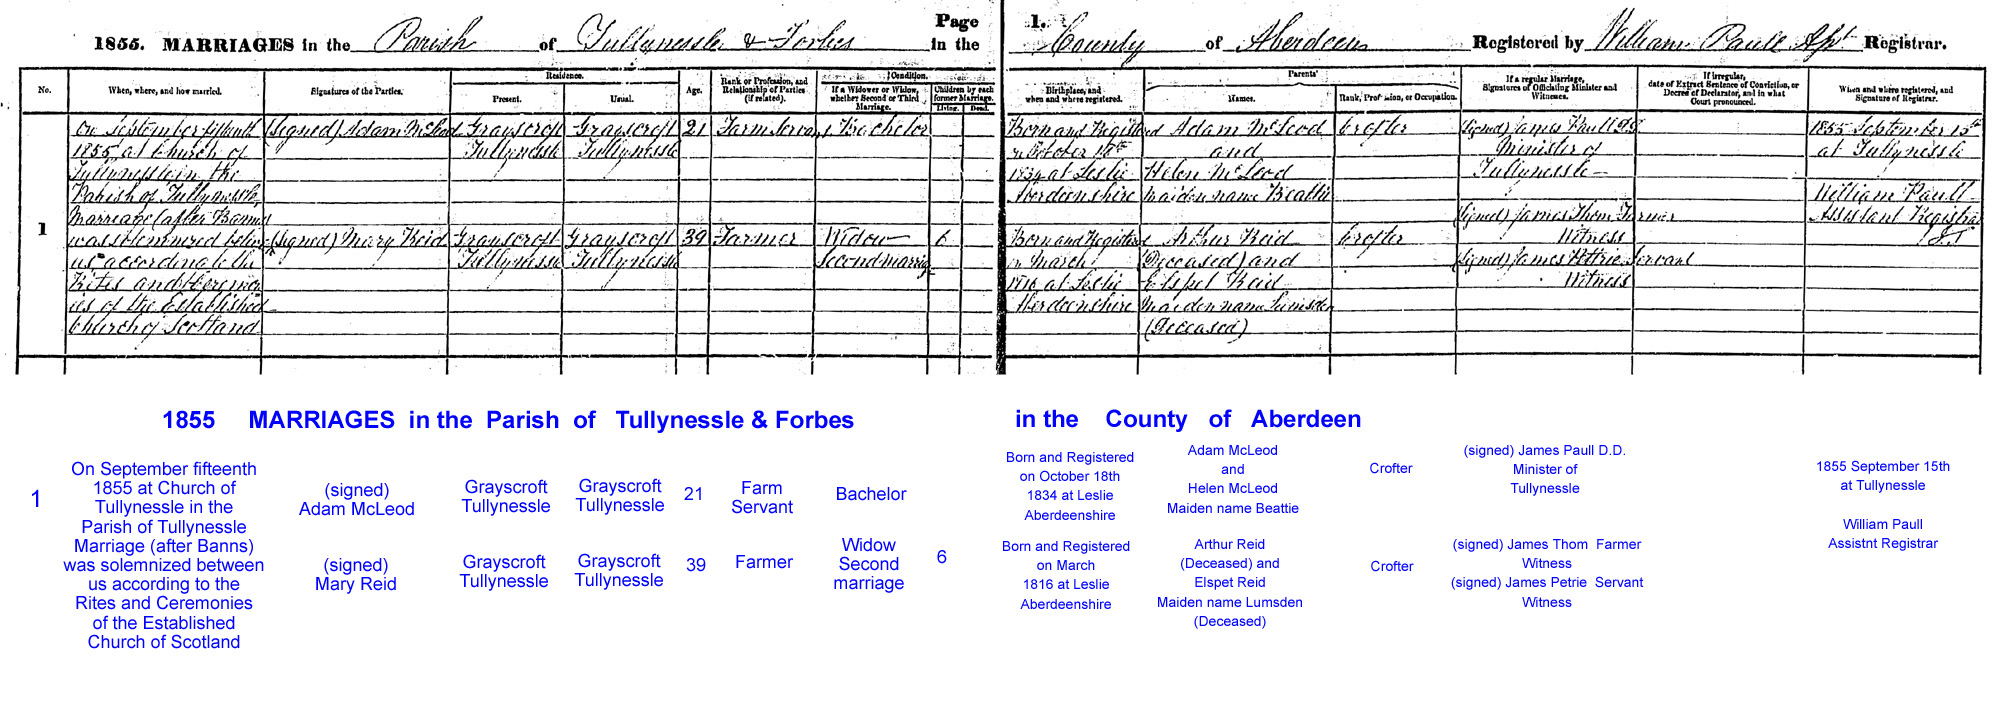 Page 1.
1855. MARRIAGES in the Parish of Tullynessle & Forbes in the County of Aberdeen Registered by William Paull Asst Registrar.
No. When, where, and how married. Signatures of the Parties. Residence. Present. Usual. Age. Rank or Profession, and Relationship of Parties (if related). Condition. If a Widower or Widow, whether Second or Third Marriage. Children by each former Marriage. Living. Dead.
Birthplace, and when and where registered. Parents' Names. Rank, Profession, or Occupation. If a regular Marriage, Signatures of Officiating Minister and Witnesses. If irregular, date of Extract Sentence of Conviction, or Decree of Declarator, and in what Court pronounced. When and where registered, and Signature of Registrar.
1
On September fifteenth
1855 at Church of
Tullynessle in the
Parish of Tullynessle
Marriage (after Banns)
was solemnized between
us according to the
Rites and Ceremon
ies of the Established
Church of Scotland
(signed) Adam McLeod
(signed) Mary Reid
Grayscroft
Tullynessle
Grayscroft
Tullynessle
Grayscroft
Tullynessle
Grayscroft
Tullynessle
21
39
Farm Servant
Farmer
Bachelor
Widow
Second marriage
6
Born and Registered
on October 18th
1834 at Leslie
Aberdeenshire
Born and Registered
on March
1816 at Leslie
Aberdeenshire
Adam McLeod
and
Helen McLeod
maiden name Beattie
Arthur Reid
(Deceased) and
Elspet Reid
maiden name Lumsden
(Deceased)
Crofter
Crofter
(signed) James Paull D.D.
Minister of
Tullynessle
(signed) James Thom Farmer
Witness
(signed) James Petrie Servant
Witness
1855 September 15th
at Tullynessle
William Paull
Assistant Registrar
1855 MARRIAGES in the Parish of Tullynessle & Forbes in the County of Aberdeen
1
On September fifteenth
1855 at Church of
Tullynessle in the
Parish of Tullynessle
Marriage (after Banns)
was solemnized between
us according to the
Rites and Ceremonies
of the Established
Church of Scotland
(signed)
Adam McLeod
(signed)
Mary Reid
Grayscroft
Tullynessle
Grayscroft
Tullynessle
Grayscroft
Tullynessle
Grayscroft
Tullynessle
21
39
Farm
Servant
Farmer
Bachelor
Widow
Second
marriage
6
Born and Registered
on October 18th
1834 at Leslie
Aberdeenshire
Born and Registered
on March
1816 at Leslie
Aberdeenshire
Adam McLeod
and
Helen McLeod
Maiden name Beattie
Arthur Reid
(Deceased) and
Elspet Reid
Maiden name Lumsden
(Deceased)
Crofter
Crofter
(signed) James Paull D.D.
Minister of
Tullynessle
(signed) James Thom Farmer
Witness
(signed) James Petrie Servant
Witness
1855 September 15th
at Tullynessle
William Paull
Assistnt Registrar